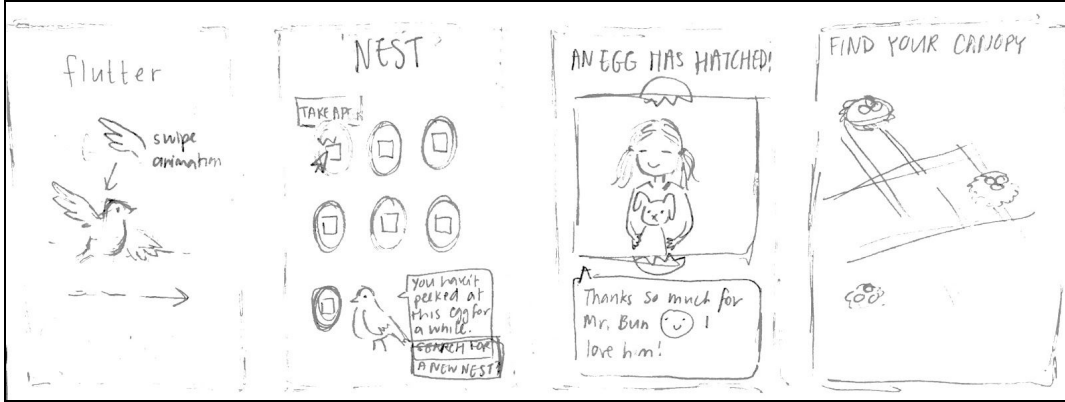 flutter
swipe
animation
NEST
TAKE APT.
You haven't
peeked at
this egg for
a while.
SEARCH FOR
A NEW NEST?
AN EGG HAS HATCHED!
Thanks so much for
Mr. Bun I
love him!
FIND YOUR CANOPY